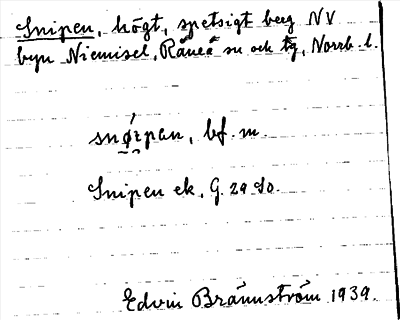 Snipen, högt, spetsigt berg NV
byn Niemisel, Råneå sn och tg, Norrb. l.
snø̀rpan, bf. m.
Snipen ek. G. 29 Sο.
Edvin Brännström 1939.